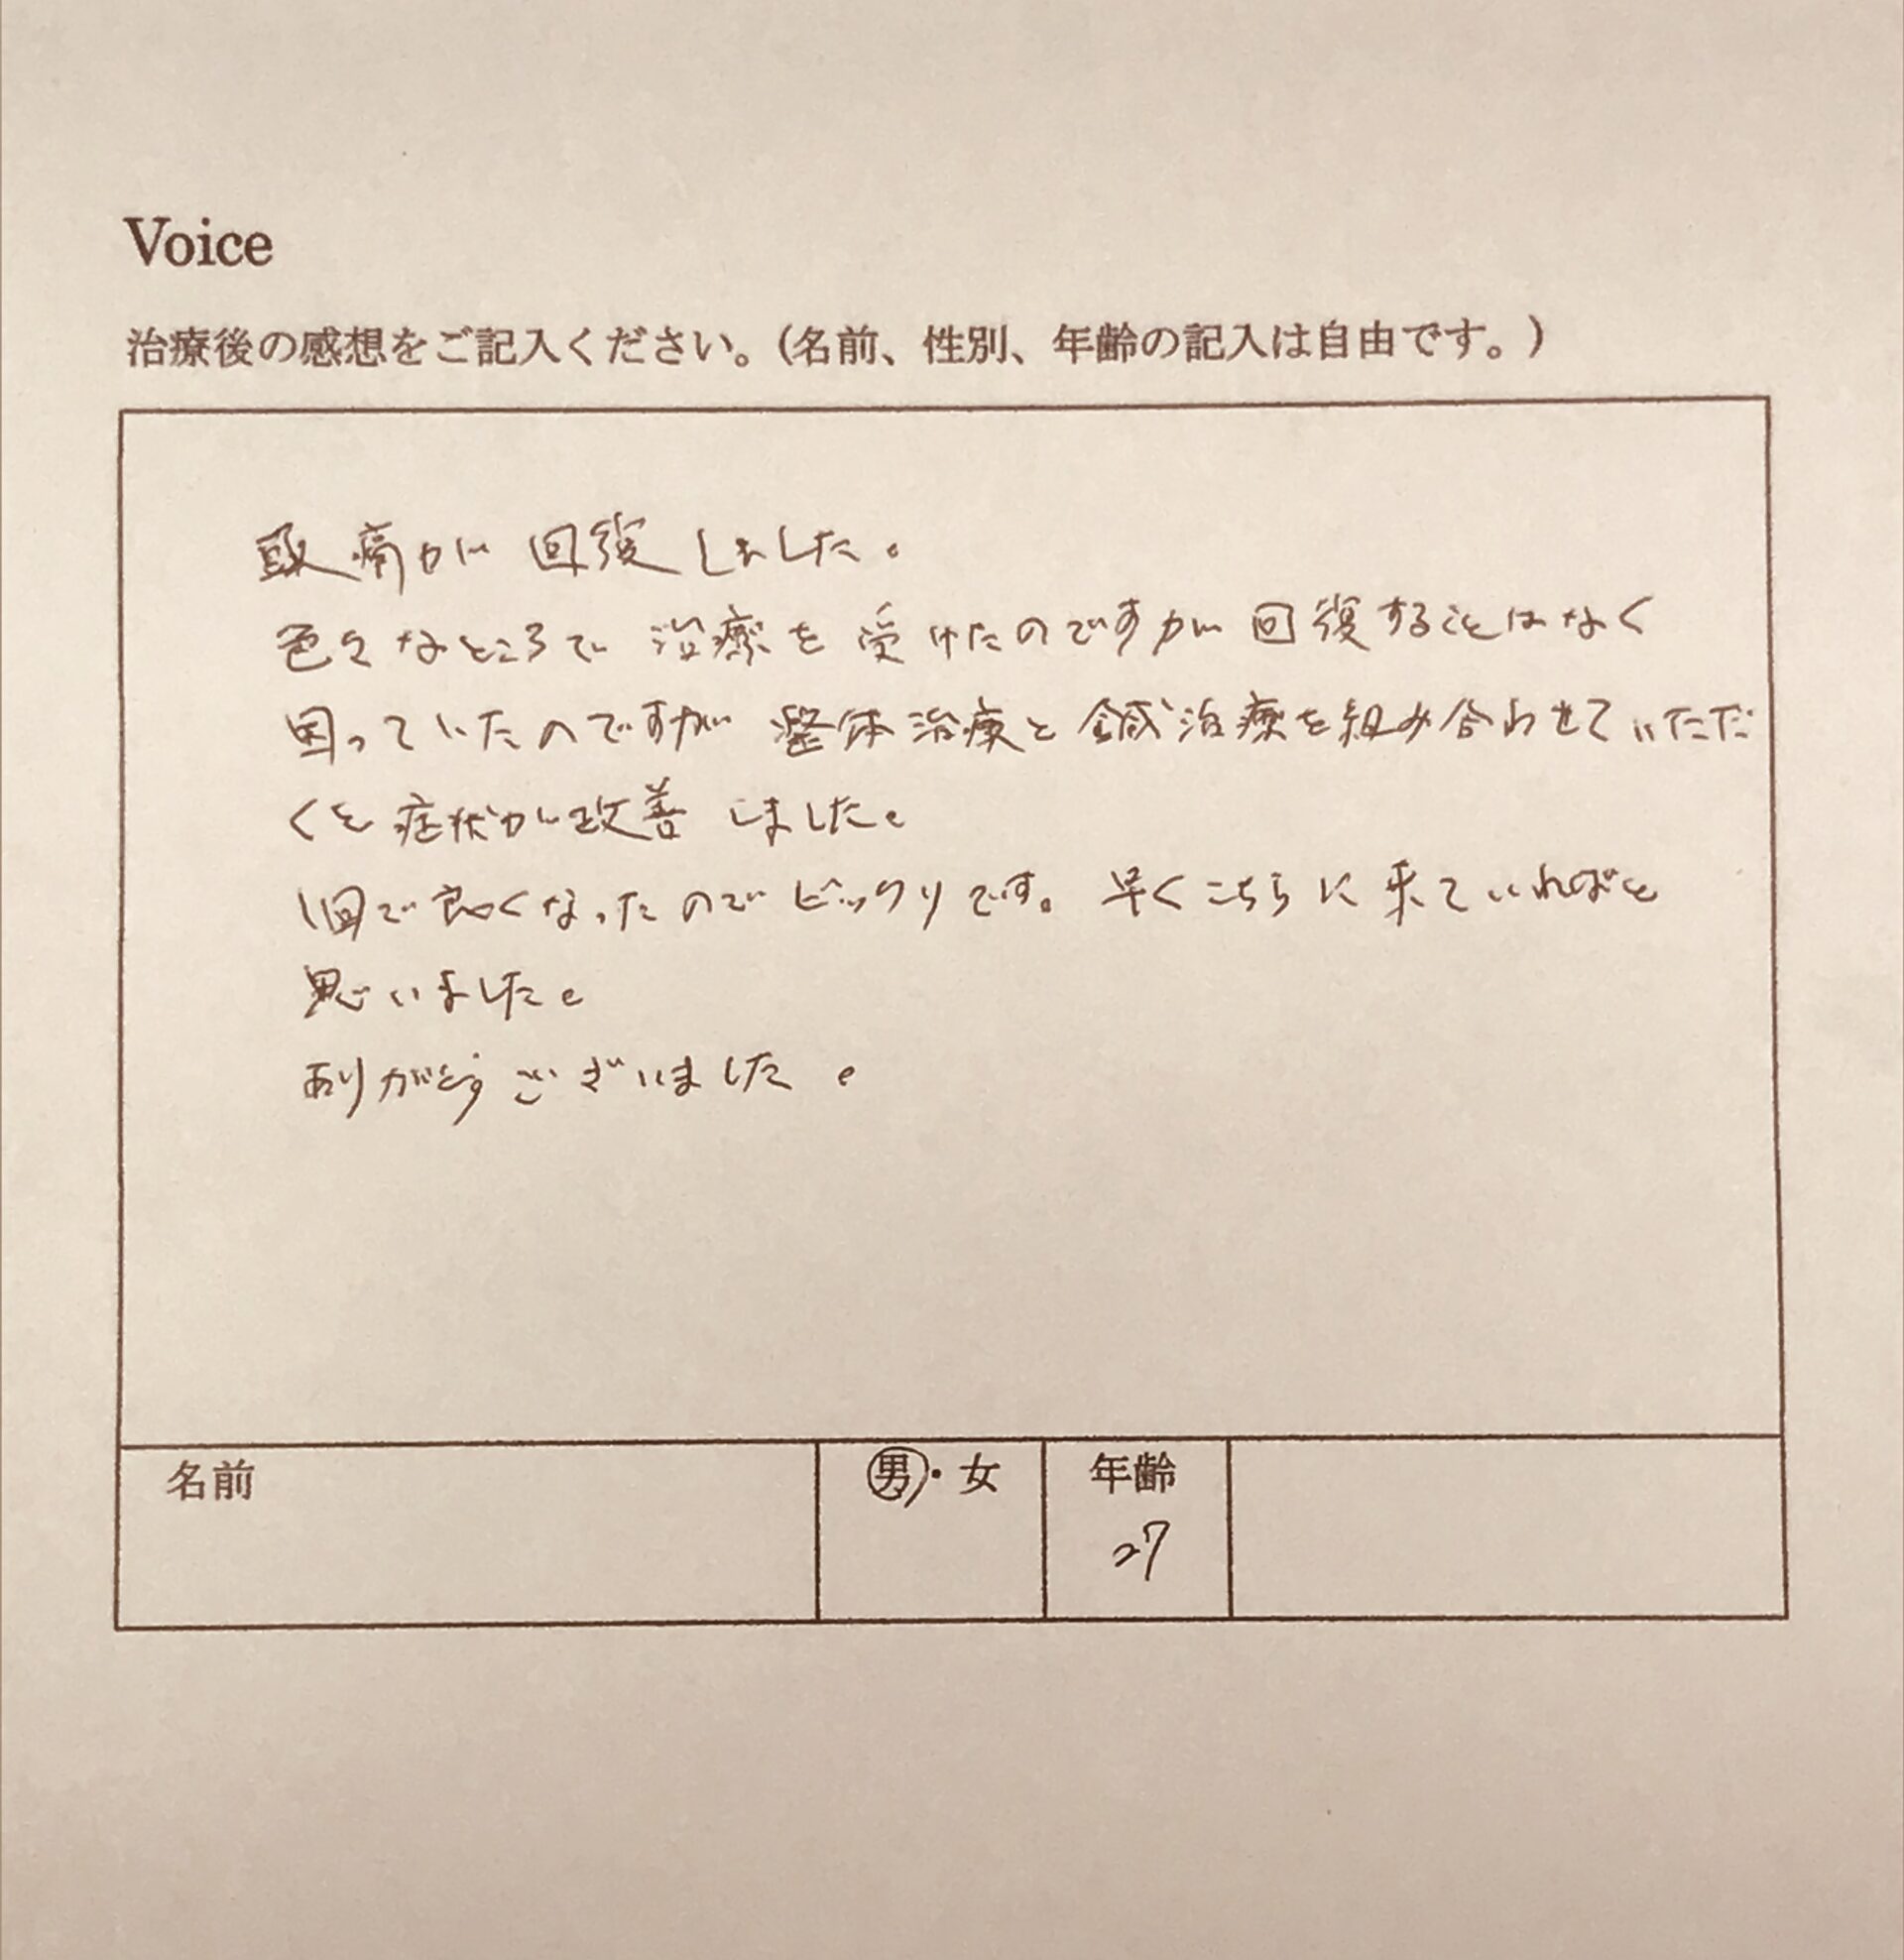 Voice
治療後の感想をご記入ください。(名前、性別、年齢の記入は自由です。)
頭痛が回復しました。
色々なところで治療を受けたのですが回復することはなく
困っていたのですが整体治療と鍼治療を組み合わせていただ
くと症状が改善しました。
1回で良くなったのでビックリです。早くこちらに来ていればと
思いました。
ありがとうございました。
名前 男・女 年齢
27